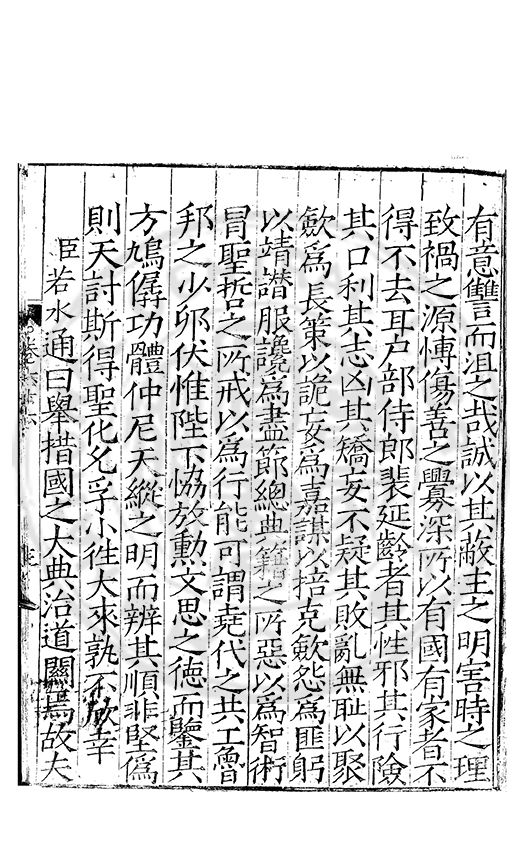 有意讐而沮之哉誠以其蔽主之明害時之理
致禍之源慱傷善之釁深所以有國有家者不
得不去耳户部侍郎裴延齡者其性邪其行險
其口利其志凶其矯妄不疑其敗亂無耻以聚
歛爲長策以詭妄爲嘉謀以掊克歛怨爲匪躬
以靖譛服讒爲盡節總典籍之所惡以爲智術
冒聖哲之所戒以爲行能可謂堯代之共工魯
邦之少夘伏惟陛下恊放勲文思之德而鑒其
方鳩僝功體仲尼天縱之明而辨其順非堅僞
則天討斯得聖化允孚小徃大來孰不欣幸
臣若水通曰舉措國之大典治道關焉故夫